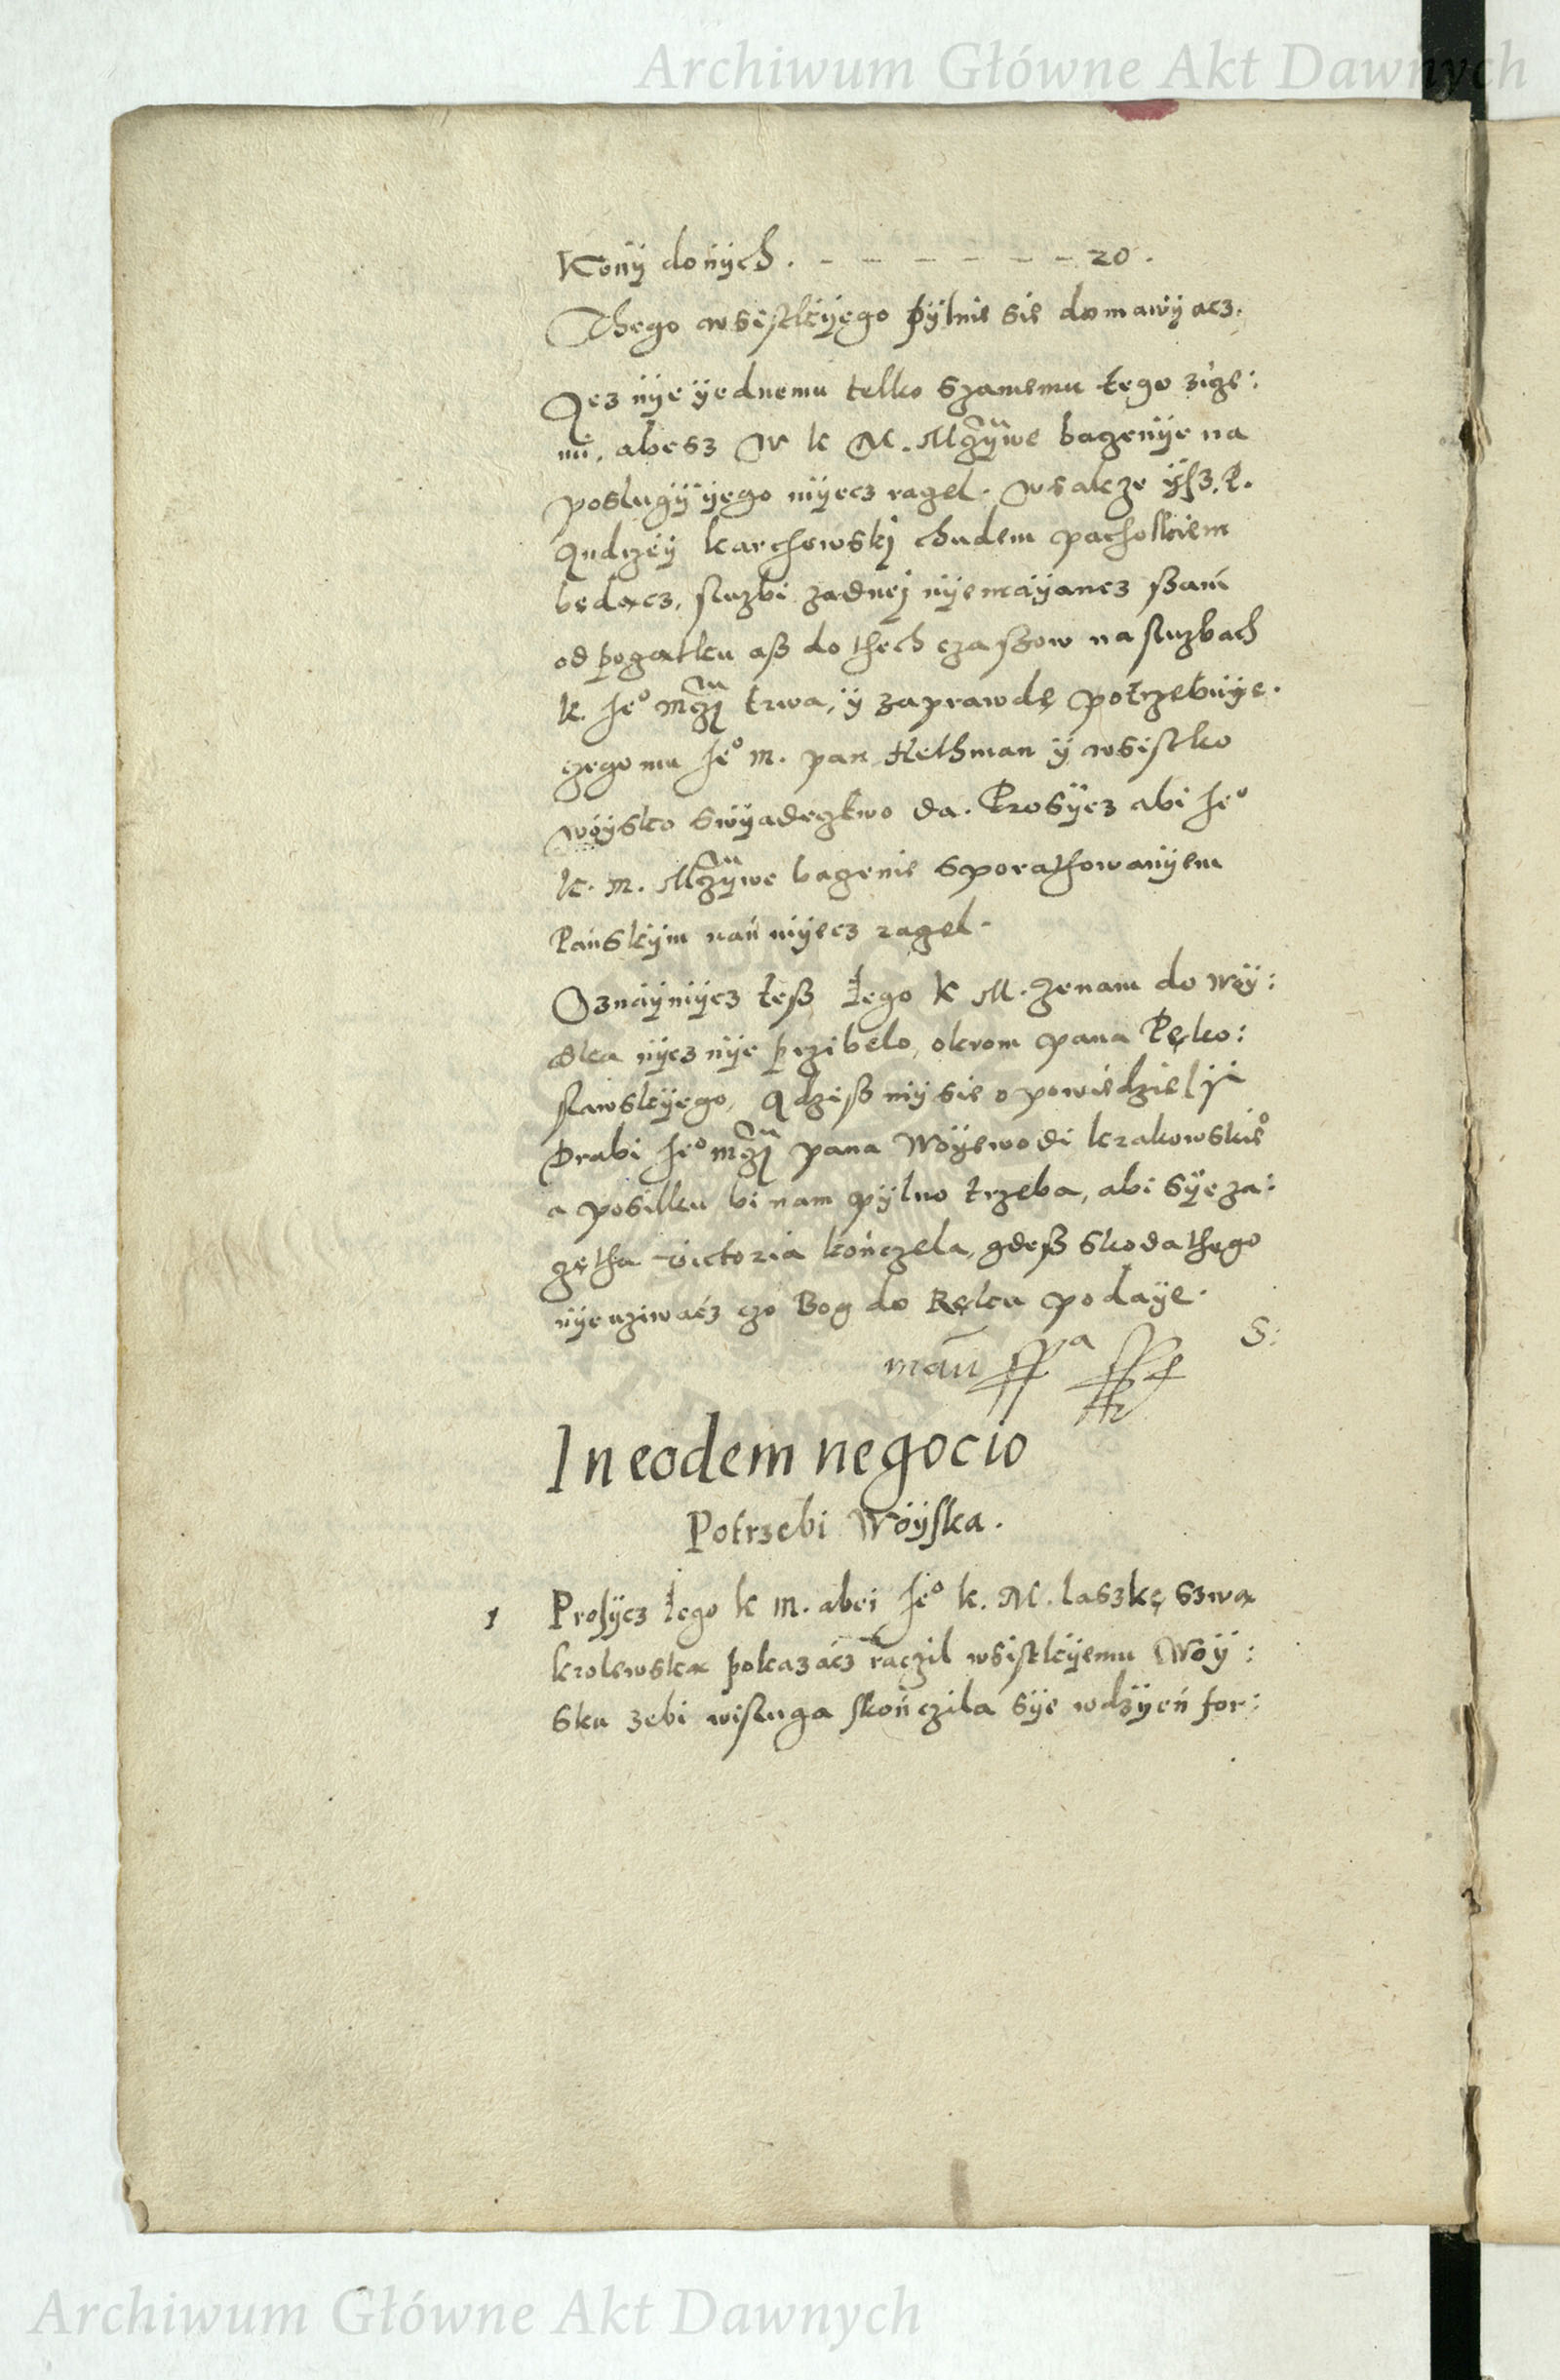 Archiwum Główne Akt Dawnych
Konÿ donÿch . – – – – – – 20 .
Thego wsistkÿego pÿlnie sie domawÿacz.
Acz nÿe ÿednemu telko szamemu tego
abesz W K M. Mczÿwe bagenÿe na
poslugÿ ÿego mÿecz ragel. wsakze ÿsz. P.
Andrzéÿ karchowskj chudem pacholkiem
bedacz, sluzbi zadnej nÿemáÿancz ßam
od pogatku aß do thech czaszow na sluzbach
k. Jeº mczj trwa, ÿ zaprawdę potrzebuÿe.
czego mu Jeº m. pan Hethman ÿ wsistko
woÿsko swÿadeczkwo da. Prosÿcz abi Jeº
k. m. Mczÿwe bagenie sporathowanÿem
Pánskÿm nań mÿecz ragel.
Oznáÿmÿcz teß Jego k M. zenam do woÿ:
ska nÿcz nÿe przibelo, okrom pana Pęko:
slawskÿego, Adziß mÿ sie opowiedzielj
Drabi Jeº mczj pana Woÿewodi krakowskieº
a posilku bi nam pÿlno trzeba, abi sÿe za:
gętha victoria kończela, gdeß skoda thego
nÿeuziwácz czo Bog do Ręku podaÿe.
S:
manu
In eodem negocio
Potrzebi Woÿska.
1 Prosÿcz Jego k m. abei Jeº k. M. laszkę szwa
krolewska pokazácz raczil wsistkÿemu Woÿ:
sku zebi wisluga skończila sÿe wdzÿeń for:
Archiwum Główne Akt Dawnych